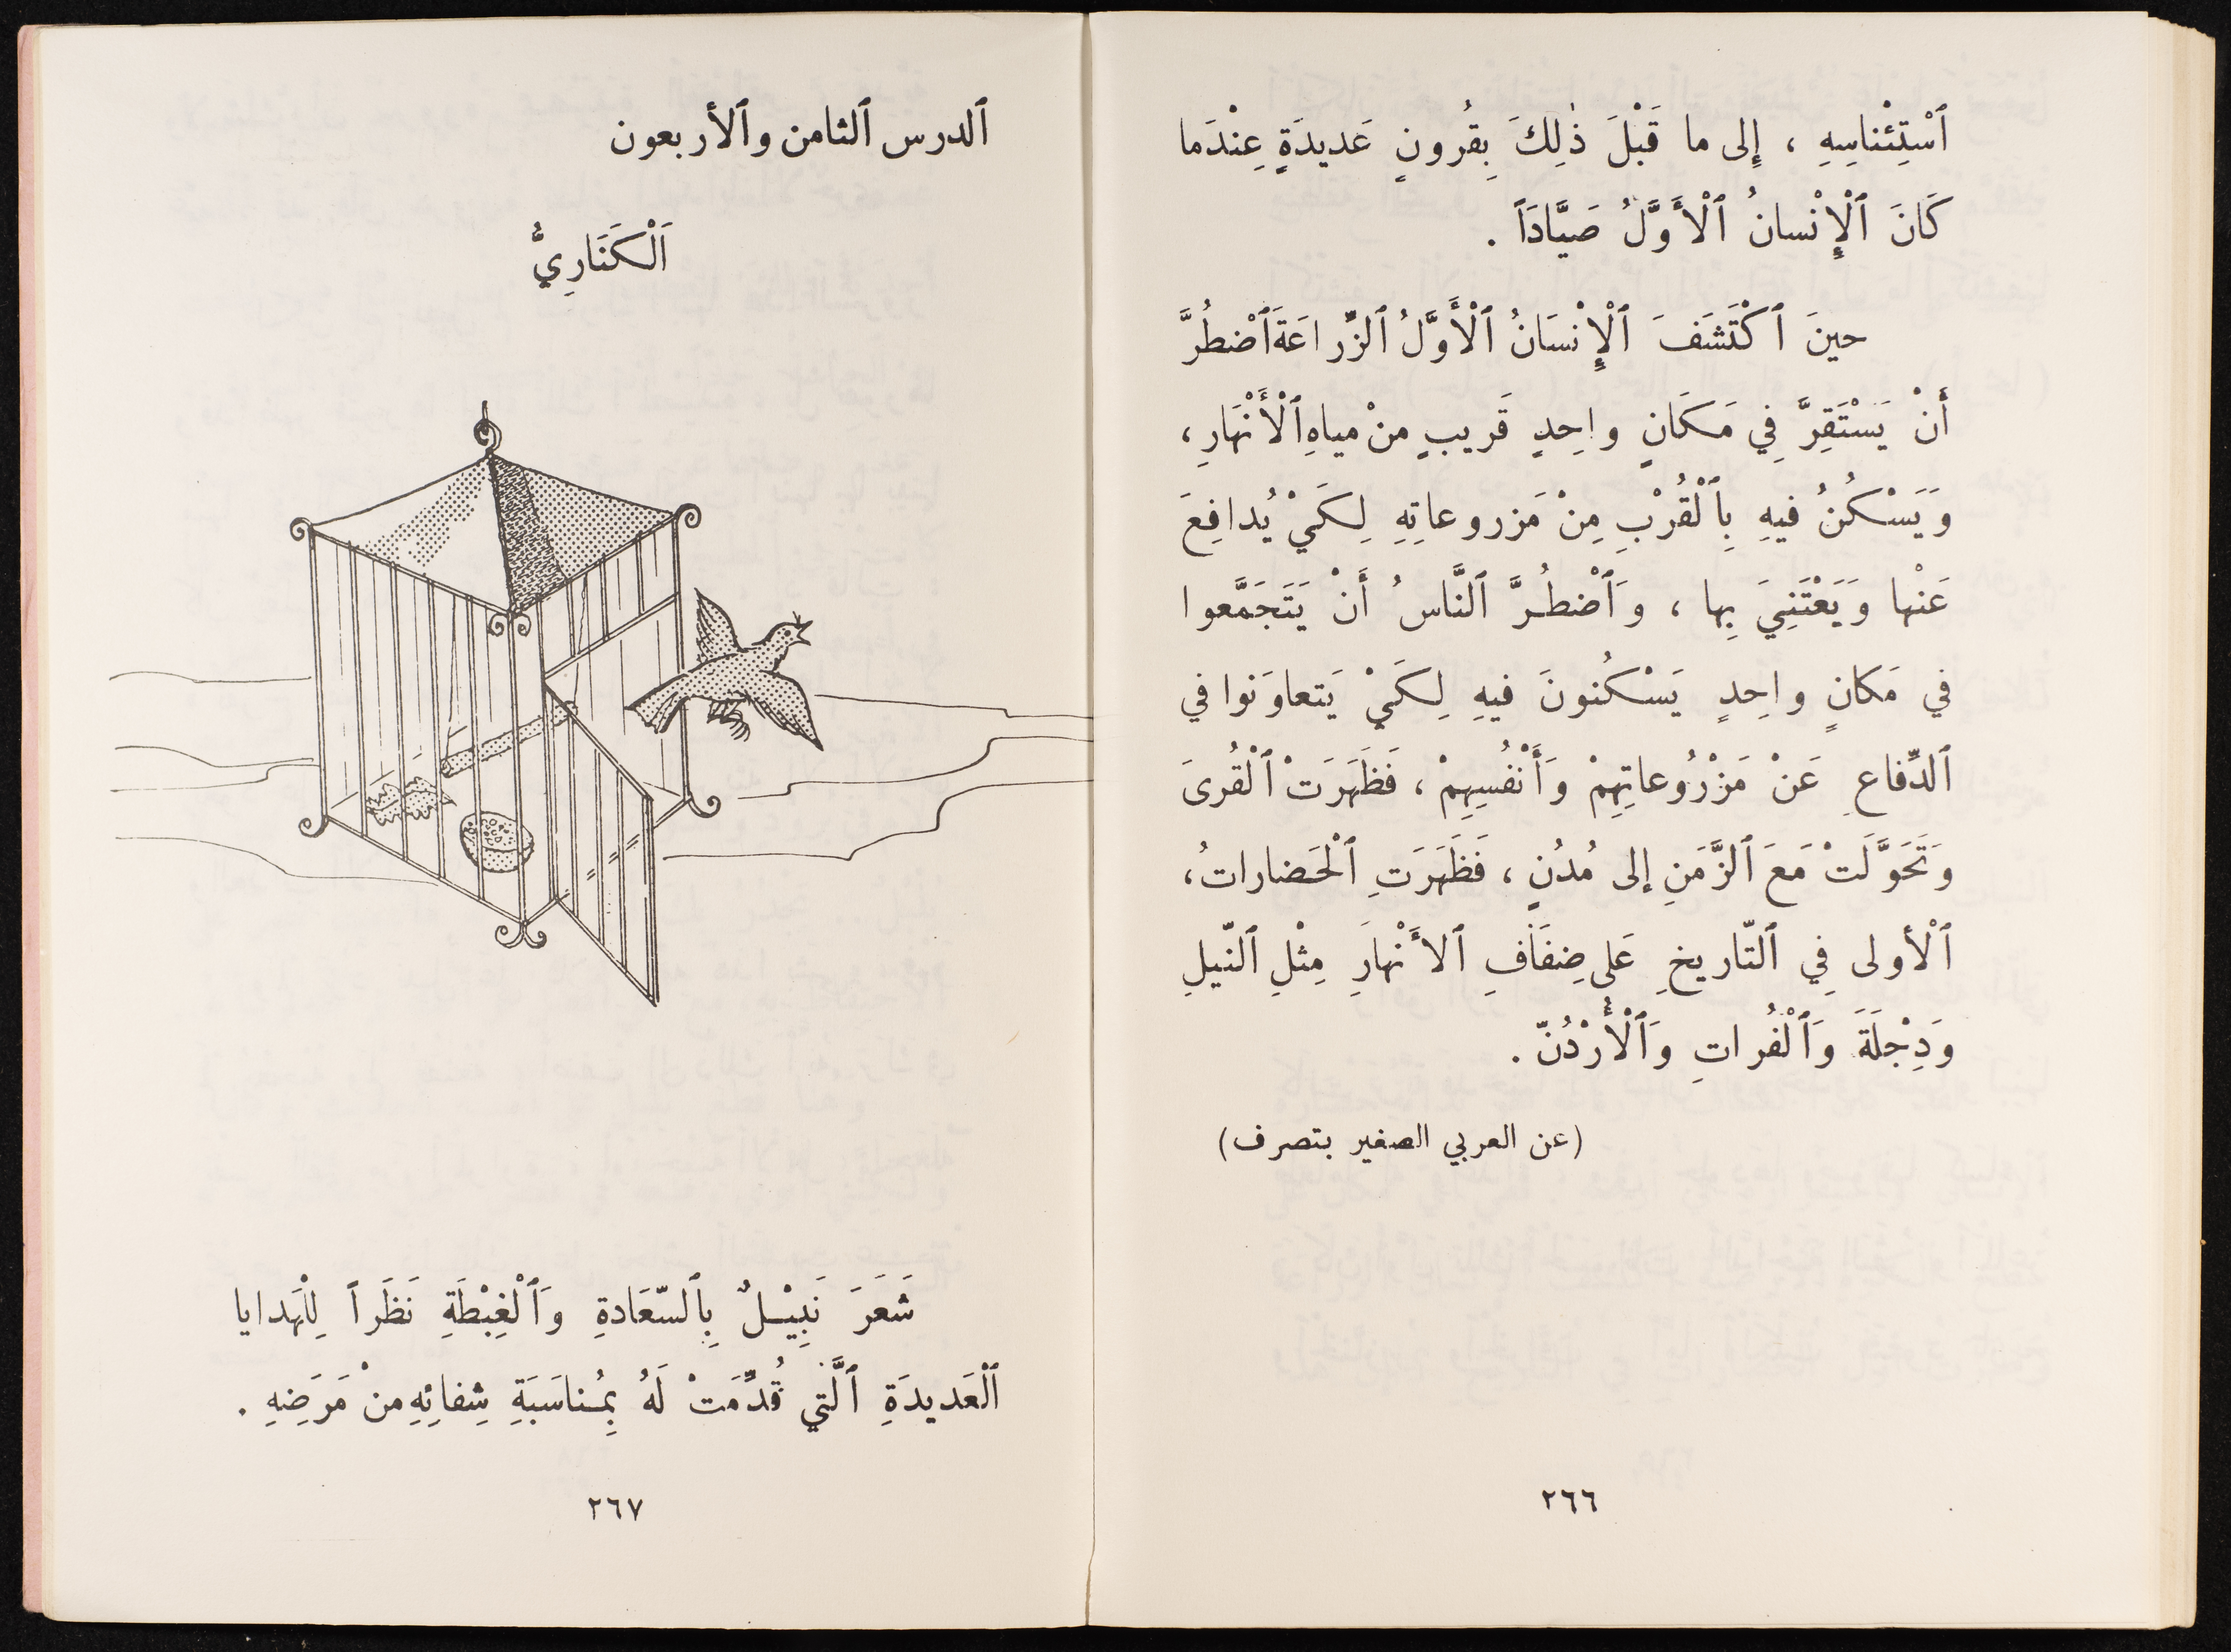 ٱسْتِئْناسِهِ ، إِلى ما قَبْلَ ذٰلِكَ بِقُرونٍ عَديدَةٍ عِنْدَما
كَانَ ٱلْإِنْسانُ ٱلْأَوَّلُ صَيَّادَاً .
حينَ ٱكْتَشَفَ ٱلْإِنْسَانُ ٱلْأَوَّلُ ٱلزِّراعَةَ ٱضْطُرَّ
أَنْ يَسْتَقِرَّ فِي مَكَانٍ واحِدٍ قَريبٍ منْ مياهِ ٱلْأَنْهَارِ ،
وَيَسْكُنُ فيهِ بِٱلْقُرْبِ مِنْ مَزروعاتِهِ لِكَيْ يُدافِعَ
عَنْها وَيَعْتَنِيَ بِها ، وَٱضْطُرَّ ٱلنَّاسُ أَنْ يَتَجَمَّعوا
في مَكانٍ واحِدٍ يَسْكُنونَ فيهِ لِكَيْ يَتعاوَنوا في
ٱلدِّفاعِ عَنْ مَزْرُوعاتِهِمْ وَأَنْفُسِهِمْ ، فَظَهَرَتْ ٱلْقُرىَ
وَتَحَوَّلَتْ مَعَ ٱلزَّمَنِ إلى مُدُنٍ ، فَظَهَرَتِ ٱلْحَضاراتُ ،
ٱلْأولى فِي ٱلتّاريخِ عَلى ضِفَافِ ٱلأَنْهارِ مِثْلِ ٱلنّيلِ
وَدِجْلَةَ وَٱلْفُراتِ وَٱلْأُرْدُنّ .
(عن العربي الصغير بتصرف)
٢٦٦
ٱلدرس ٱلثامن وٱلأربعون
اَلْكَنَارِيُّ
شَعَرَ نَبِيْلٌ بِٱلسّعَادةِ وَٱلْغِبْطَةِ نَظَراً لِلْهَدايا
ٱلْعَديدَةِ ٱلَّتي قُدِّمَتْ لَهُ بِمُناسَبَةِ شِفائِهِ منْ مَرَضِهِ .
٢٦٧